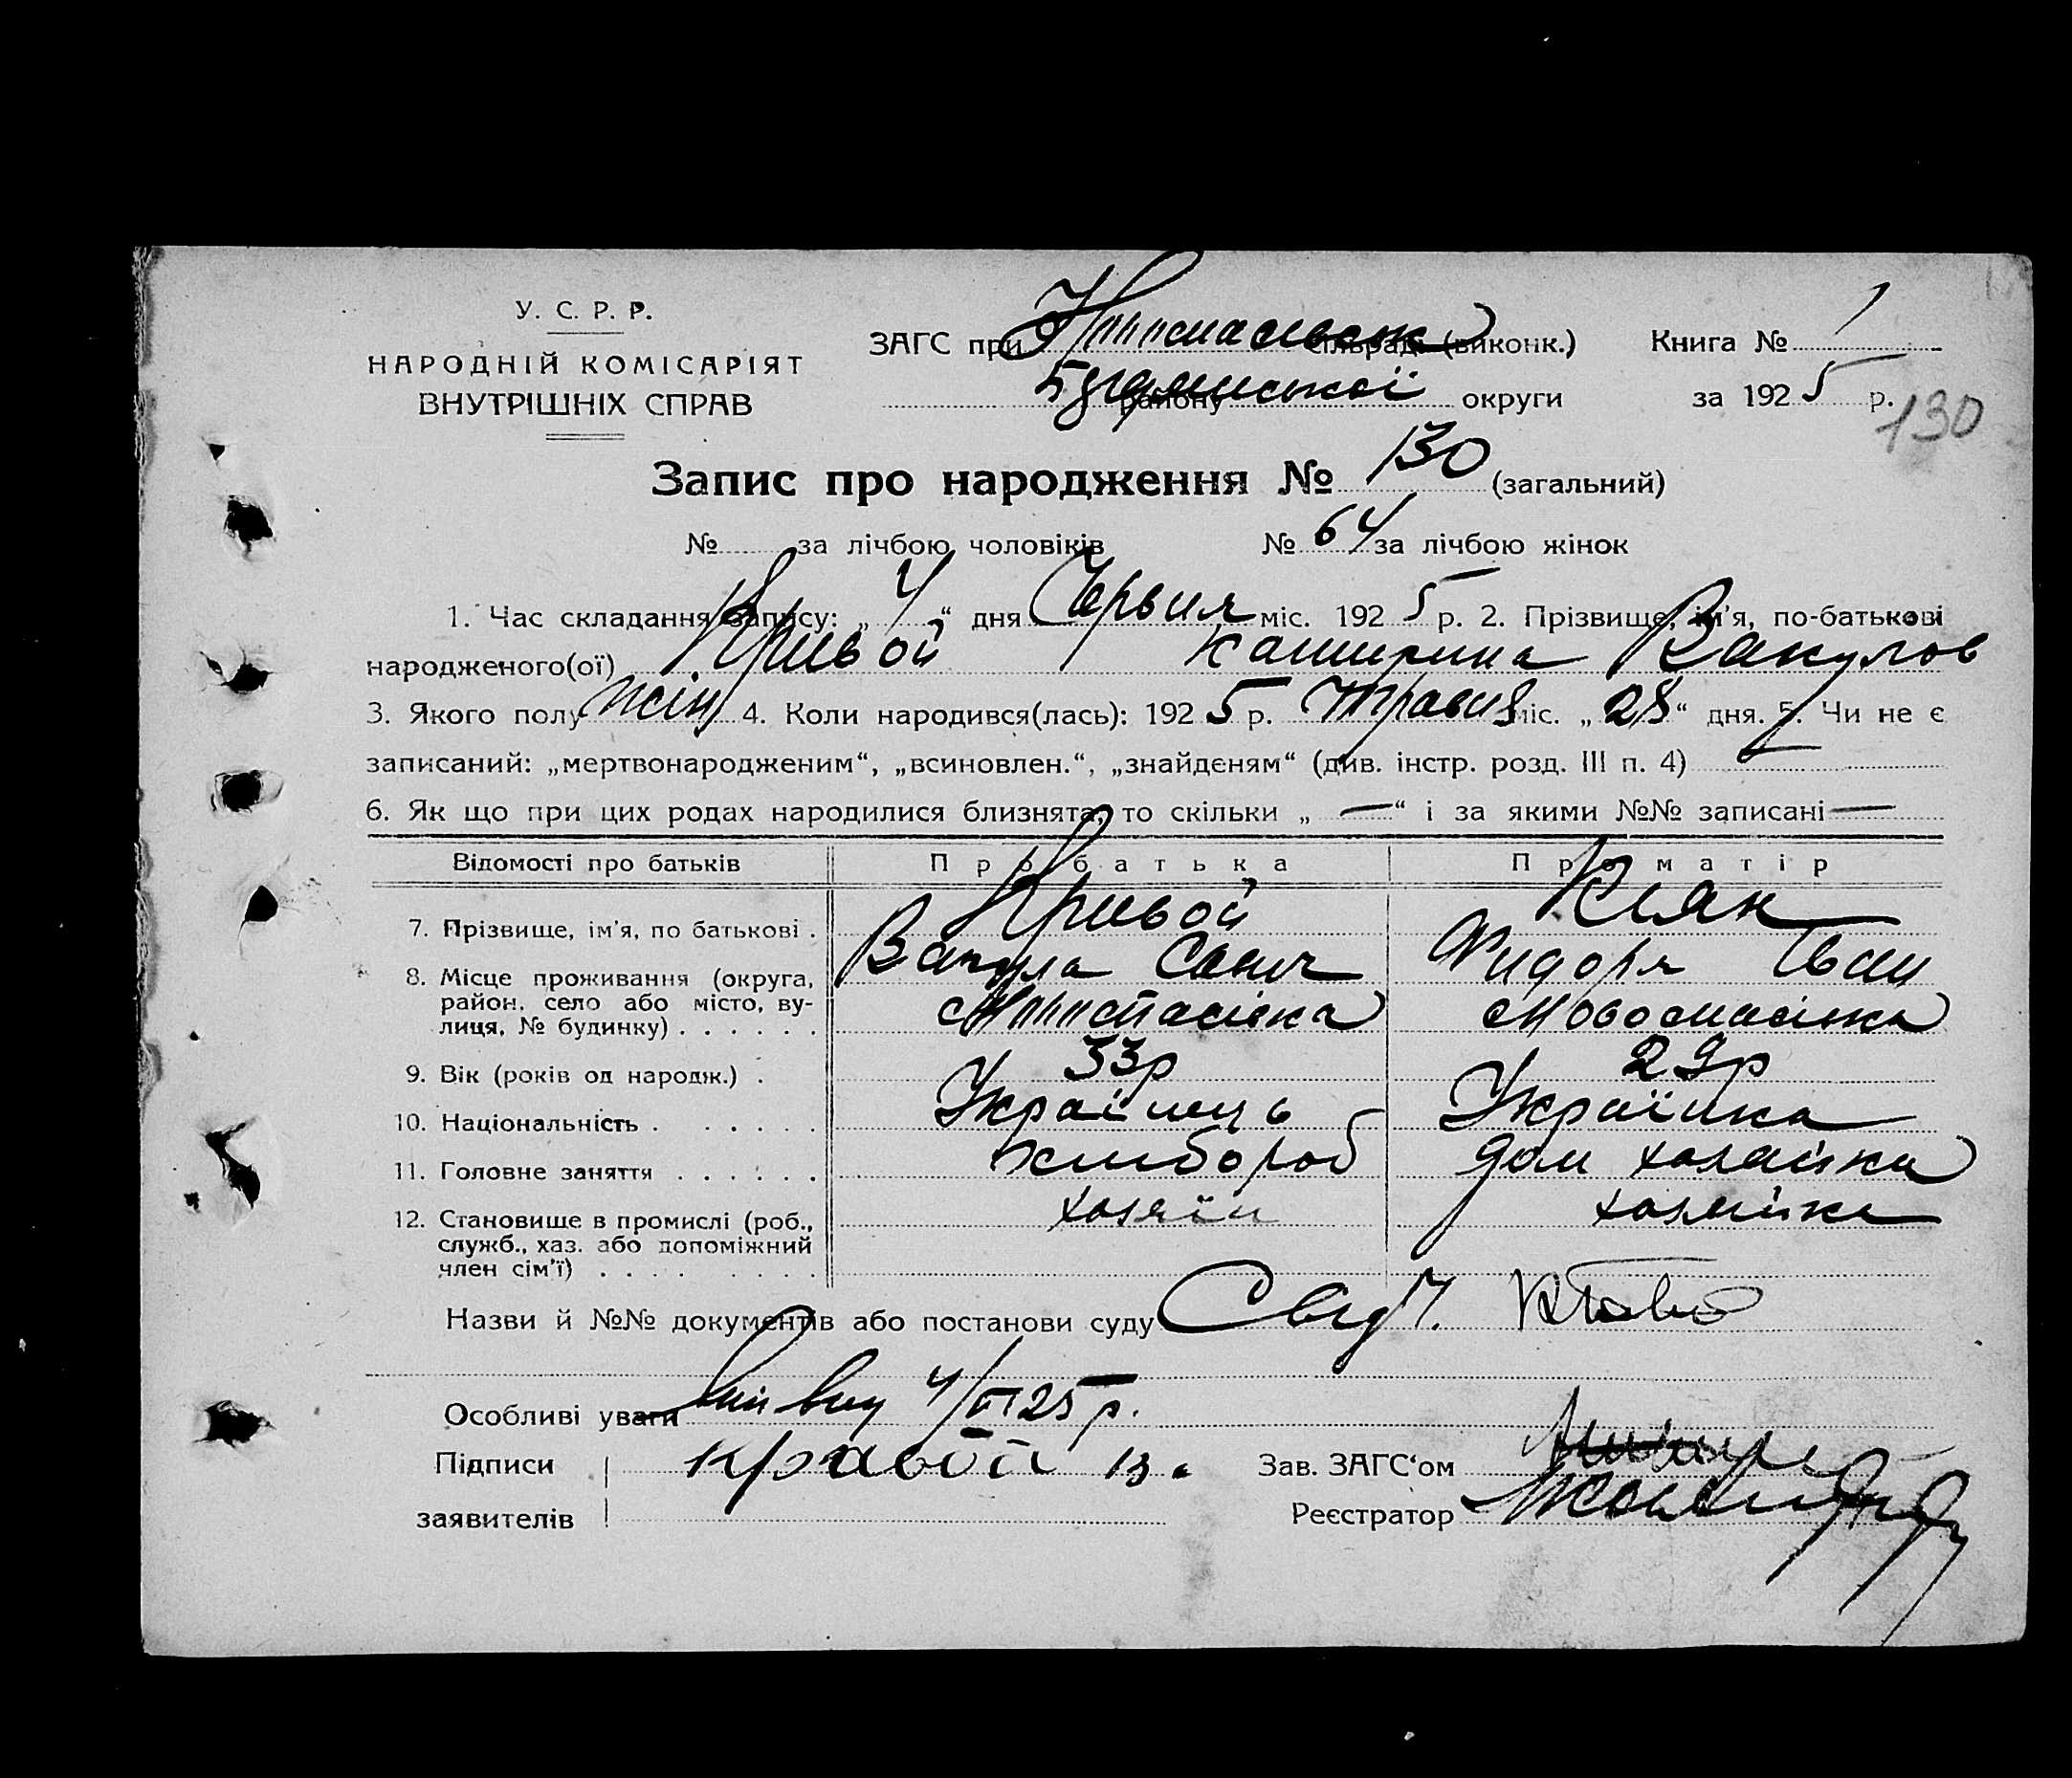 У. С. Р. Р.
НАРОДНІЙ КОМІСАРІЯТ
ВНУТРІШНІХ СПРАВ
ЗАГС при сільраді (виконк.)
району округи
Книга № 1
за 1925 р.
130
Запис про народження № 130 (загальний)
№ за лічбою чоловіків № 64 за лічбою жінок
1. Час складання запису: „4“ дня Червня міс. 1925 р. 2. Прізвище, ім'я, по-батькові
народженого(ої) Кривой Катирина Вакулов
3. Якого полу жін 4. Коли народився(лась): 1925 р. Травня міс. „28“ дня. 5. Чи не є
записаний: „мертвонародженим“, „всиновлен.“, „знайдєням“ (див. інстр. розд. III п. 4)
6. Як що при цих родах народилися близнята, то скільки „—“ і за якими №№ записані —
Відомості про батьків Про батька Про матір
7. Прізвище, ім'я, по батькові . Кривой Кляк
Вакула Фидоря Іван
8. Місце проживання (округа, район, село або місто, вулиця, № будинку) . . . . . .
9. Вік (років од народж.) . 33р 29р
10. Національність . . . . . . Українць Українка
11. Головне заняття . . . . . . Хлибороб дом хозяйка
12. Становище в промислі (роб., служб., хаз. або допоміжний член сім'ї) . . . . хозяїн хозяйка
Назви й №№ документів або постанови суду
Особливі уваги 4/VI 25 р.
Підписи заявителів
Зав. ЗАГС‘ом
Реєстратор